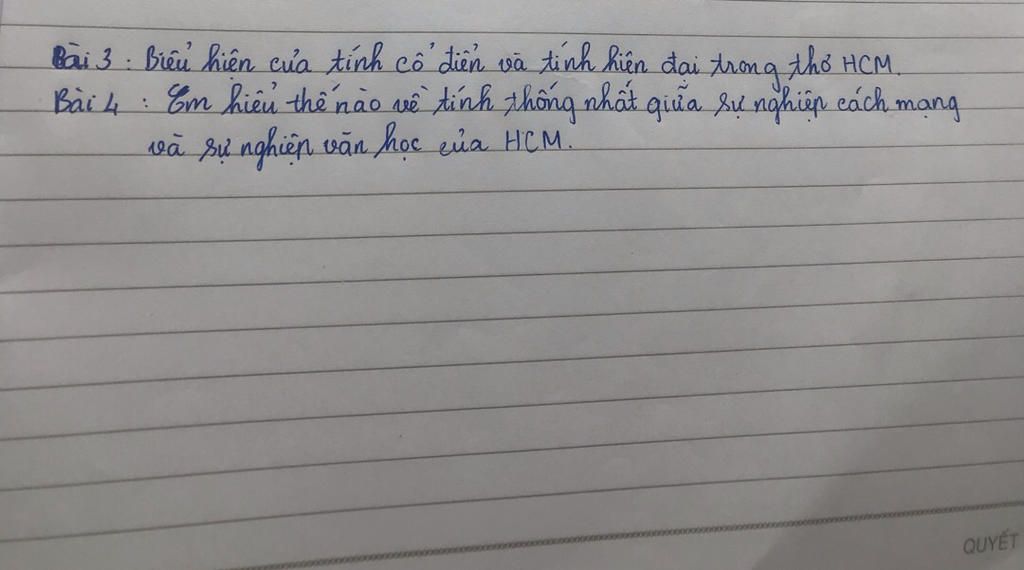 Bài 3 : Biểu hiện của tính cổ điển và tính hiện đại trong thơ HCM.
Bài 4 : Em hiểu thế nào về tính thống nhất giữa sự nghiệp cách mạng
và sự nghiệp văn học của HCM.
QUYẾT